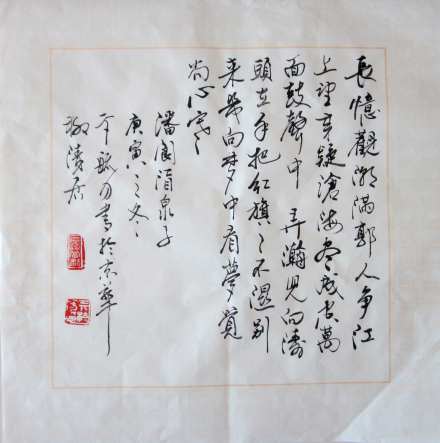 長憶觀潮滿郭人争江
上望来疑滄海盡成空萬
面鼓聲中 弄潮兒向濤
頭立手把紅旗〻不濕别
来幾向梦中看夢覺
尚心寒
潘阆酒泉子
庚寅之冬
書於京華
陵居